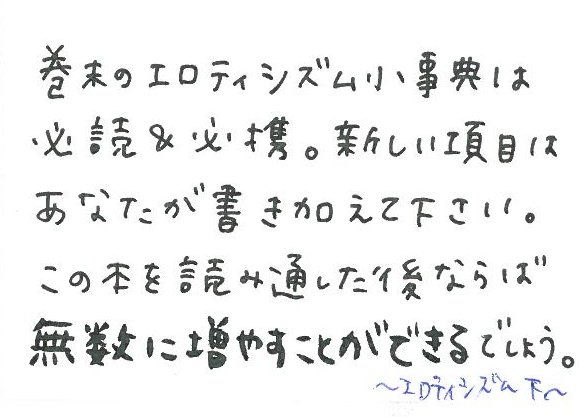 巻末のエロティシズム小事典は
必読&必携。新しい項目は
あなたが書き加えて下さい。
この本を読み通した後ならば
無数に増やすことができるでしょう。
～エロティシズム 下～